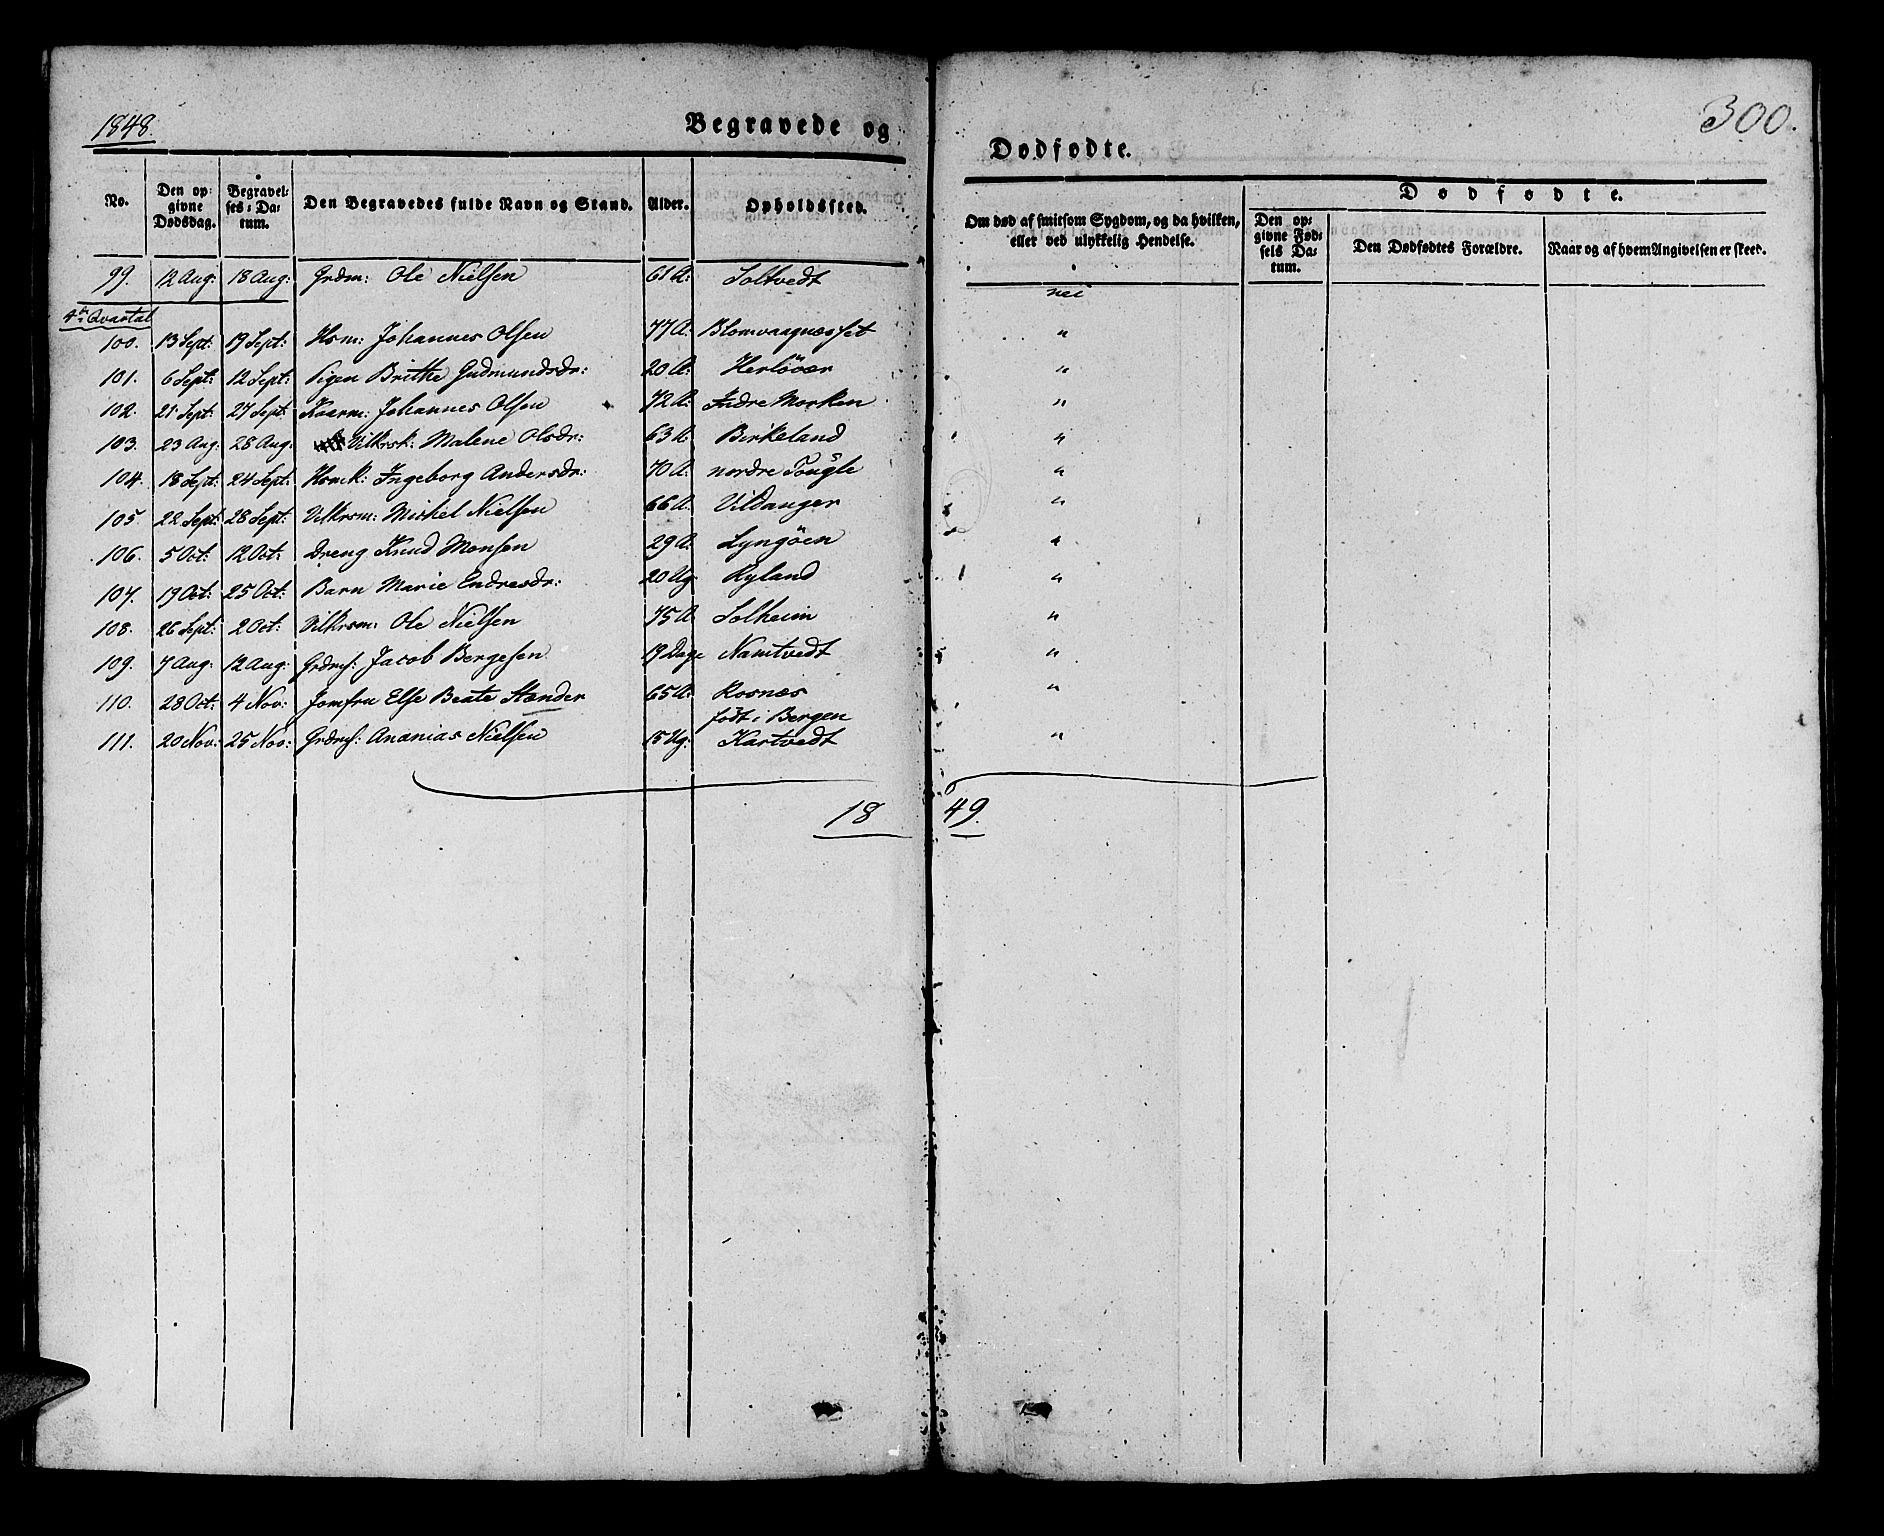 1848.
Begravede og
Dødfødte.
300.
No.
Den opgivne Dødsdag.
Begravelses-Datum.
Den Begravedes fulde Navn og Stand.
Alder.
Opholdssted.
Om død af smitsom Sygdom, og da hvilken, eller ved ulykkelig Hendelse.
Dødfødte.
Den opgivne Fødsels Datum.
Den Dødfødtes Forældre.
Naar og af hvem Angivelsen er skeet.
99. 12 Aug: 18 Aug: Grdm: Ole Nielsen 61 A: Soltvedt nei
4de Qvartal
100. 13 Sept: 19 Sept: Hsm: Johannes Olsen 77 A: Blomvaagnæsset "
101. 6 Sept: 12 Sept: Pigen Brithe Gudmundsdr: 20 A: Herløvær "
102. 21 Sept: 27 Sept: Kaarm: Johannes Olsen 72 A: Indre Morken "
103. 23 Aug: 28 Aug: Vilkrsk: Malene Olsdr: 63 A: Birkeland "
104. 18 Sept: 24 Sept: Hsmk: Ingeborg Andersdr: 70 A: nordre Tougle "
105. 22 Sept: 28 Sept: Vilkrsm: Michel Nielsen 66 A: Vildanger "
106. 5 Oct: 12 Oct: Dreng Knud Monsen 29 A: Lyngöen "
107. 19 Oct: 25 Oct: Barn Marie Endresdr: 20 Ug: Ryland "
108. 26 Sept: 2 Oct: Vilkrsm: Ole Nielsen 75 A: Solheim "
109. 7 Aug: 12 Aug: Grdms: Jacob Bergesen 19 Dage Namtvedt "
110. 28 Oct: 4 Nov: Jomfru Else Beate Stender 65 A: Rosnæs "
födt i Bergen
111. 20 Nov: 25 Nov: Grdms: Ananias Nielsen 15 Ug: Kartvedt "
18 49.